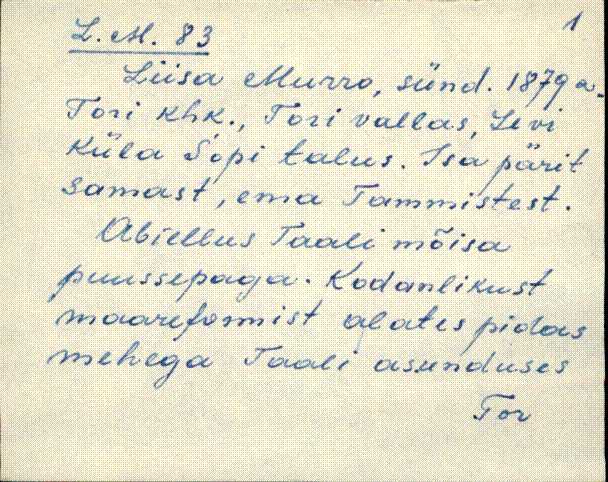 1
L. M. 83
Liisa Murro, sünd. 1879 a.
Tori khk., Tori vallas, Levi
küla Sopi talus. Isa pärit
samast, ema Tammistest.
Abiellus Taali mõisa
puussepaga. Kodanlikust
maareformist alates pidas
mehega Taali asunduses
Tor